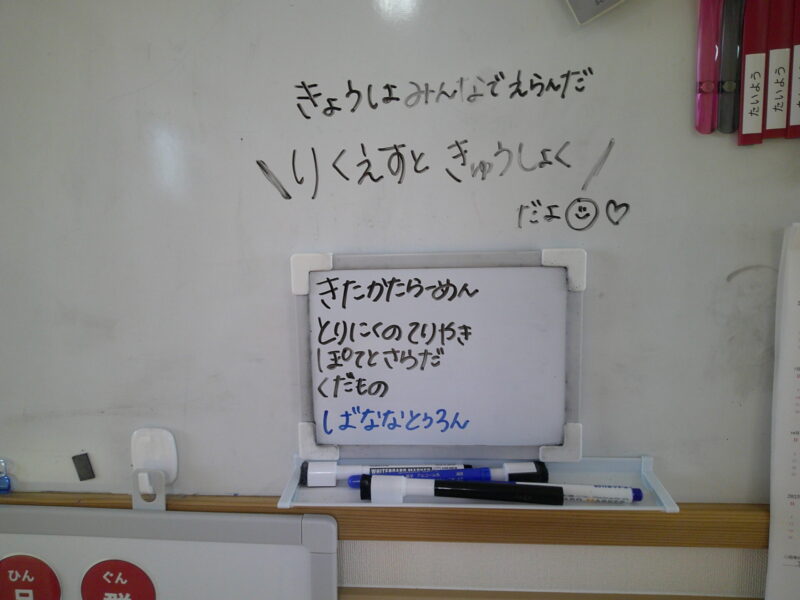 きょうはみんなでえらんだ
\りくえすと きゅうしょく/
だよ☺♡
きたかたらーめん
とりにくのてりやき
ぽてとさらだ
くだもの
しばななとうろん
WHITEBOARD MARKER
たいよう
たいよう
ひん
ぐん
群